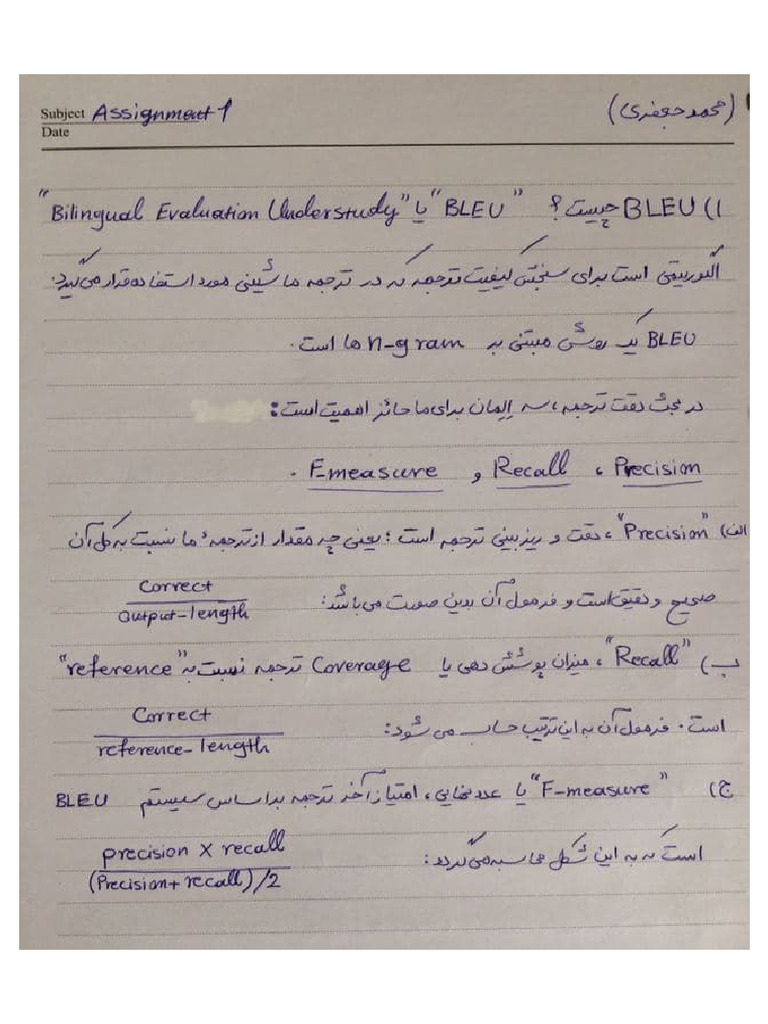 Subject Assignment 1 (محمد جعفری)
Date
۱) BLEU چیست؟ "BLEU" یا "Bilingual Evaluation Understudy"
الگوریتمی است برای سنجش کیفیت ترجمه که در ترجمه ماشینی مورد استفاده قرار می‌گیرد.
BLEU یک روش مبتنی به n-gram ها است.
در بحث دقت ترجمه، سه اِلِمان برای ما حائز اهمیت است:
Precision ، Recall و F-measure .
الف) "Precision"، دقت و ریزبینی ترجمه است؛ یعنی چه مقدار از ترجمهٔ ما نسبت به کل آن
صحیح و دقیق است و فرمول آن بدین صورت می‌باشد: Correct / Output-length
ب) "Recall"، میزان پوشش دهی یا Coverage ترجمه نسبت به "reference"
است. فرمول آن به این ترتیب حساب می شود: Correct / reference-length
ج) "F-measure" یا عدد نهایی، امتیاز آخر ترجمه براساس سیستم BLEU
است که به این شکل محاسبه می‌گردد: precision x recall / (Precision+recall)/2